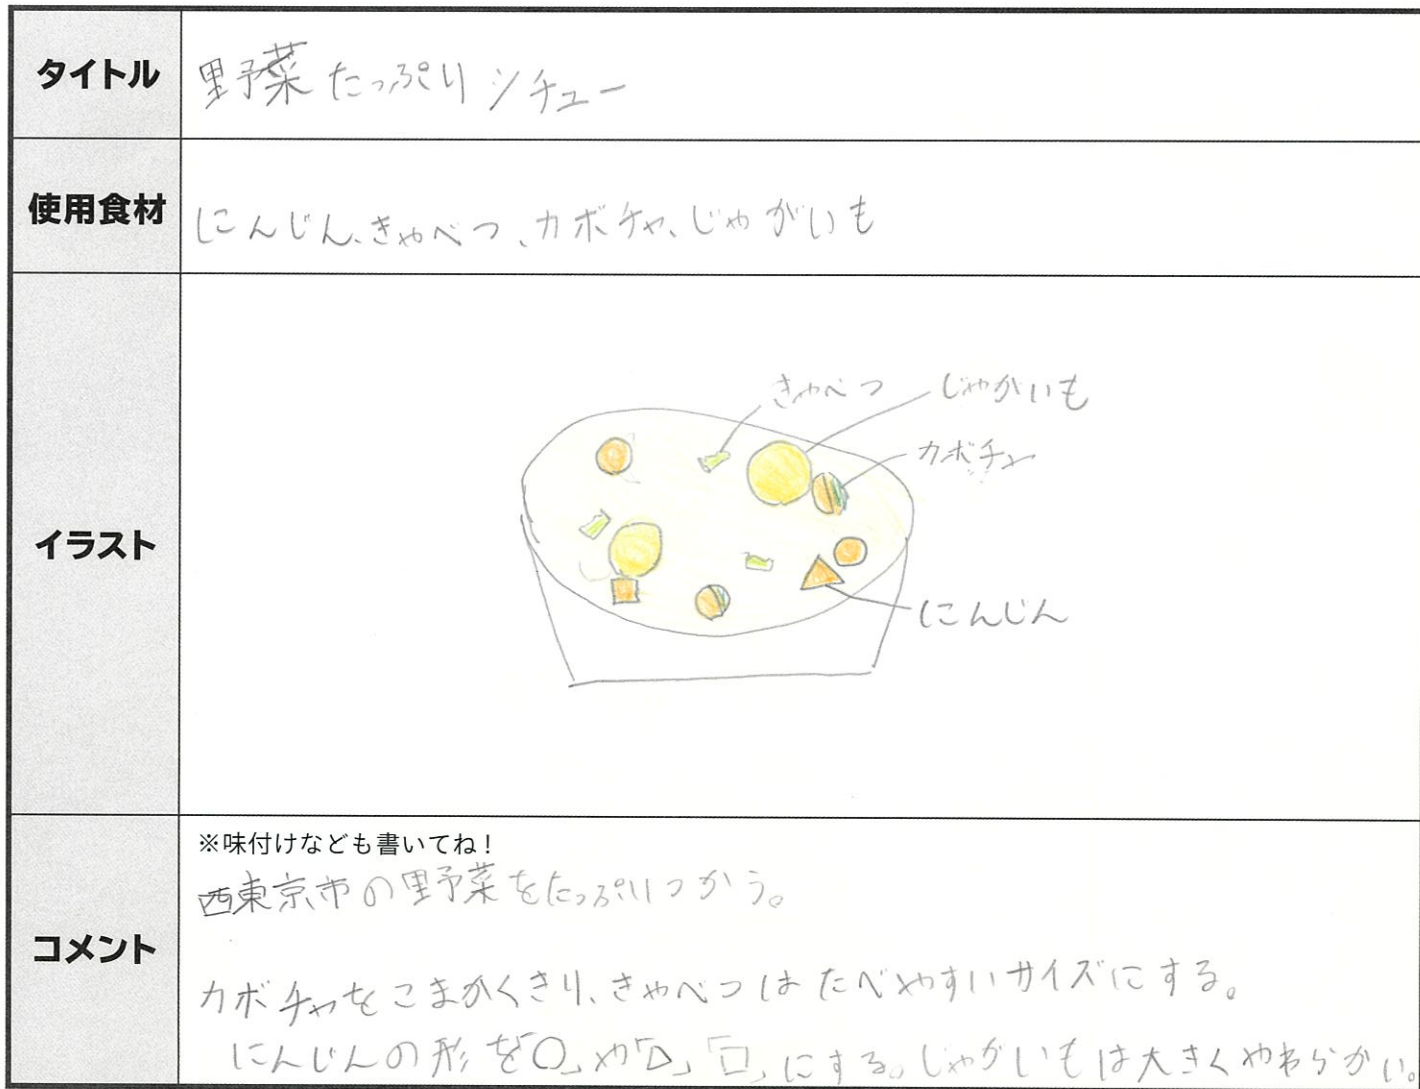 タイトル
野菜たっぷりシチュー
使用食材
にんじん、きゃべつ、カボチャ、じゃがいも
イラスト
きゃべつ
じゃがいも
カボチャ
にんじん
コメント
※味付けなども書いてね!
西東京市の野菜をたっぷりつかう。
カボチャをこまかくきり、きゃべつはたべやすいサイズにする。
にんじんの形を「○」や「△」「□」にする。じゃがいもは大きくやわらかい。